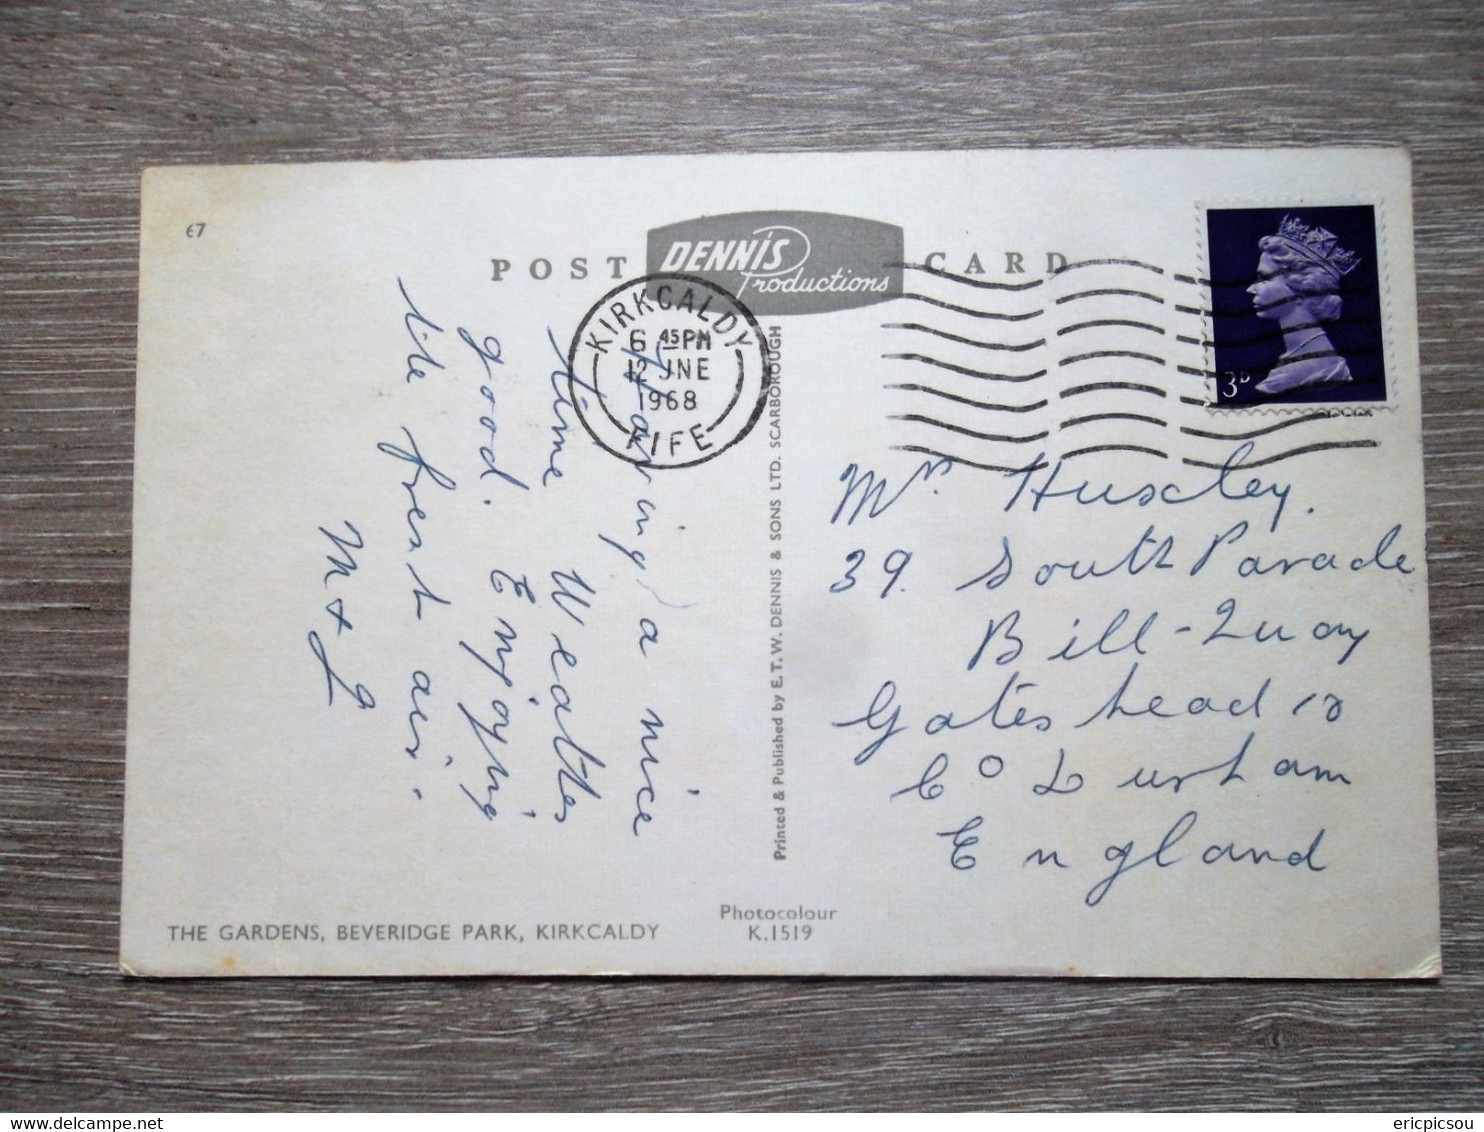 67
POST CARD
DENNIS
Productions
KIRKCALDY
6 45 PM
12 JNE
1968
FIFE
3D
Having a nice
time Weather
good. Enjoying
the fresh air.
M + J
Mrs. Huxley.
39. South Parade
Bill-Quay
Gateshead 10
Co Durham
England
Printed & Published by E.T.W. DENNIS & SONS LTD. SCARBOROUGH
THE GARDENS, BEVERIDGE PARK, KIRKCALDY
Photocolour
K.1519
delcampe.net
ericpicsou